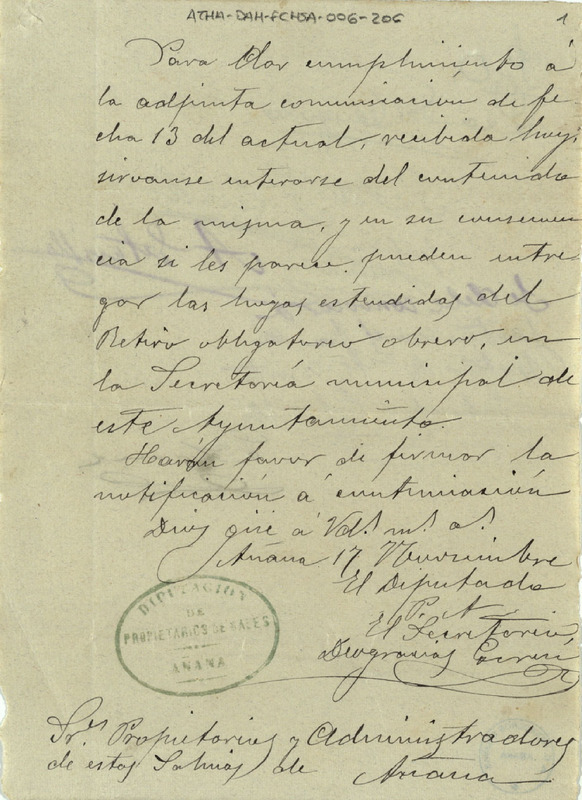 ATHA-DAH-FCHSA-006-206
1
Para dar cumplimiento á
la adjunta comunicacion de fe
cha 13 del actual, recibida hoy,
sirvanse enterarse del contenido
de la misma, y en su consecuen
cia si les parece pueden entre
gar las hojas estendidas del
Retiro obligatorio obrero, en
la Secretoría munisipal de
este Ayuntamiento.
Harán favor de firmar la
notificación á continuación
Dios gue á Vds. ms. as.
Añana 17 Noviembre
El Diputado
P. A.
El Secretario,
Deogracias
DIPUTACION
DE
PROPIETARIOS DE SALES
AÑANA
Srs. Propietarios y Administradores
de estas Salinas de Añana